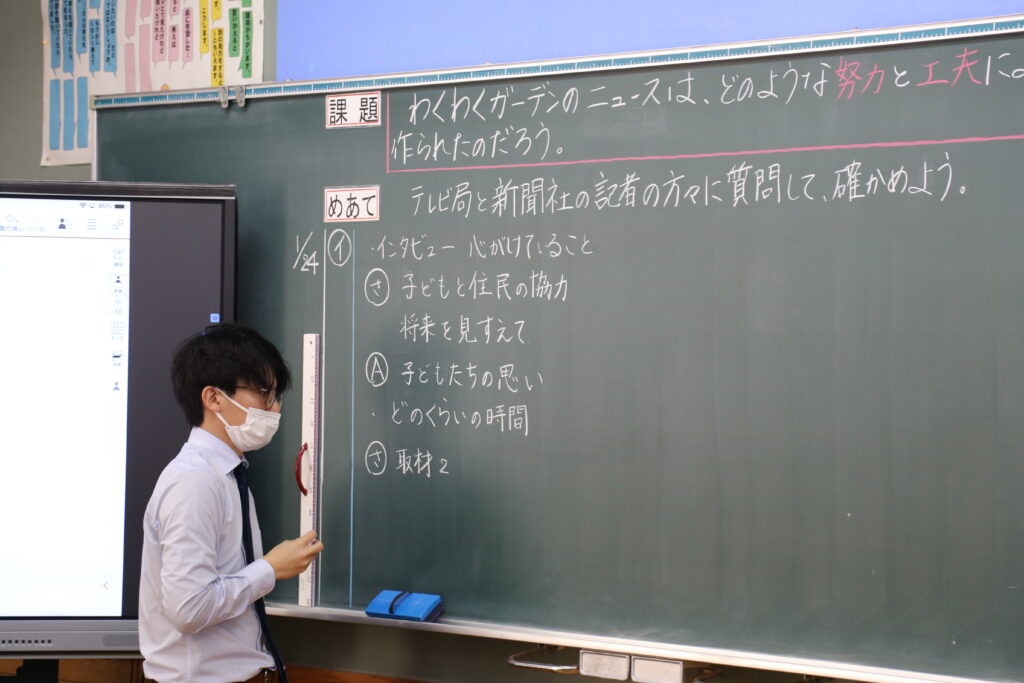 課題
わくわくガーデンのニュースは、どのような努力と工夫によ
作られたのだろう。
めあて
テレビ局と新聞社の記者の方々に質問して、確かめよう。
1/24
イ ・インタビュー 心がけていること
さ 子どもと住民の協力
将来を見すえて
A 子どもたちの思い
・どのくらいの時間
さ 取材2
95%